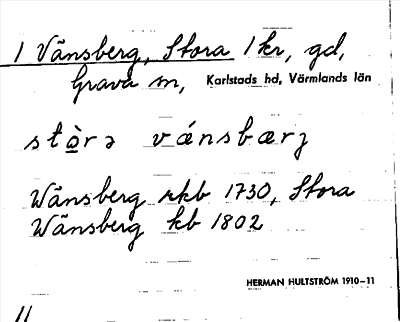 1 Vänsberg, Stora 1 kr, gd,
Grava sn, Karlstads hd, Värmlands län
stò̱rə vánsbærj
Wänsberg rkb 1730, Stora
Wänsberg kb 1802
HERMAN HULTSTRÖM 1910–11